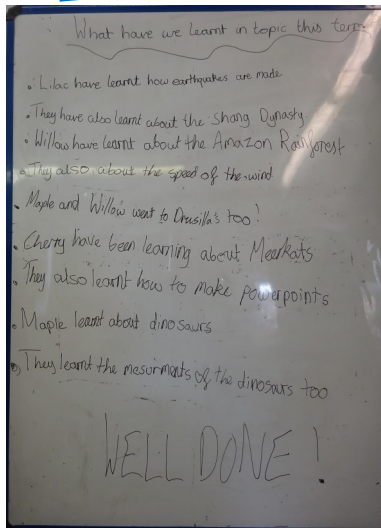 What have we learnt in topic this term
• Lilac have learnt how earthquakes are made
• They have also learnt about the Shang Dynasty
• Willow have learnt about the Amazon Rainforest
• They also about the speed of the wind
• Maple and Willow went to Drusilla's too!
• Cherry have been learning about Meerkats
• They also learnt how to make powerpoints
• Maple learnt about dinosaurs
• They learnt the mesurments of the dinosaurs too
WELL DONE!